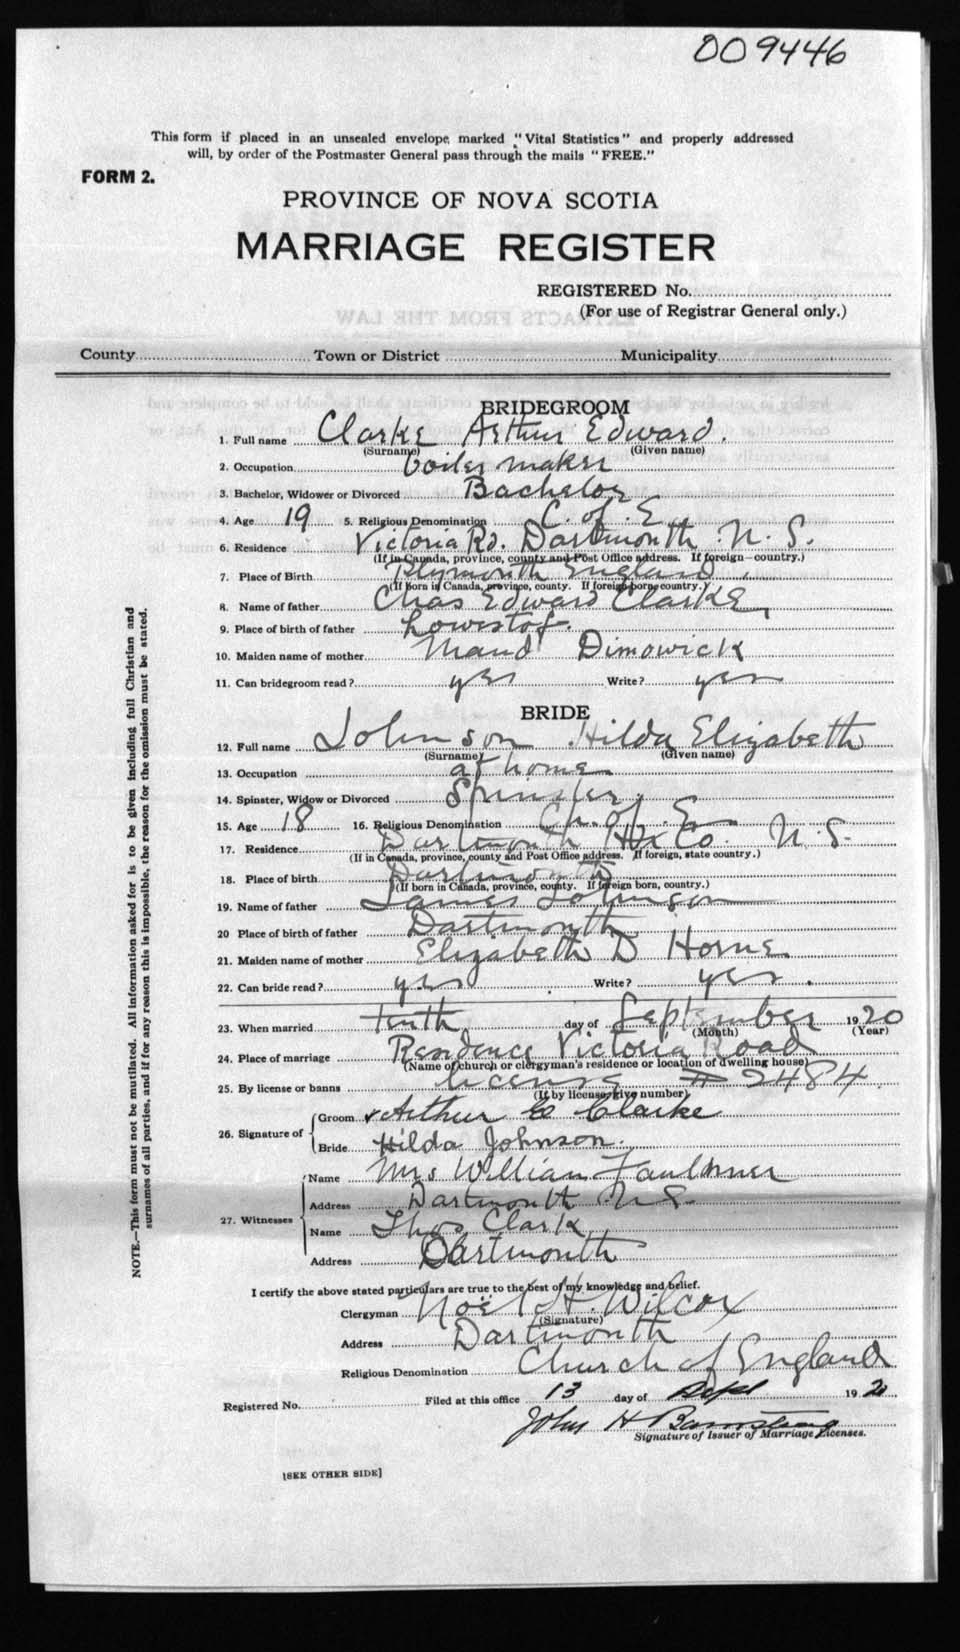 009446
This form if placed in an unsealed envelope, marked "Vital Statistics" and properly addressed
will, by order of the Postmaster General pass through the mails "FREE."
FORM 2.
PROVINCE OF NOVA SCOTIA
MARRIAGE REGISTER
REGISTERED No.
(For use of Registrar General only.)
County Town or District Municipality
BRIDEGROOM
1. Full name Clarke Arthur Edward.
(Surname) (Given name)
2. Occupation boiler maker
3. Bachelor, Widower or Divorced Bachelor
4. Age 19 5. Religious Denomination C. of E
6. Residence Victoria Rd. Dartmouth N. S.
(If in Canada, province, county and Post Office address. If foreign—country.)
7. Place of Birth Plymouth England
(If born in Canada, province, county. If foreign born, country.)
8. Name of father Chas Edward Clarke
9. Place of birth of father Lowestof.
10. Maiden name of mother Maud Dimowick
11. Can bridegroom read? yes Write? yes
BRIDE
12. Full name Johnson Hilda Elizabeth
(Surname) (Given name)
13. Occupation at home
14. Spinster, Widow or Divorced Spinster
15. Age 18 16. Religious Denomination Ch. of E.
17. Residence Dartmouth Hx Co. N. S.
(If in Canada, province, county and Post Office address. If foreign, state country.)
18. Place of birth Dartmouth
(If born in Canada, province, county. If foreign born, country.)
19. Name of father James Johnson
20 Place of birth of father Dartmouth
21. Maiden name of mother Elizabeth D Horne
22. Can bride read? yes Write? yes.
23. When married tenth day of September 1920
(Month) (Year)
24. Place of marriage Residence Victoria Road
(Name of church or clergyman's residence or location of dwelling house)
25. By license or banns license # 2484
(If by license, give number)
26. Signature of Groom x Arthur E Clarke
Bride Hilda Johnson.
27. Witnesses Name Mrs William Faulkner
Address Dartmouth N. S.
Name Thos Clark
Address Dartmouth
I certify the above stated particulars are true to the best of my knowledge and belief.
Clergyman Noël H. Wilcox
(Signature)
Address Dartmouth
Religious Denomination Church of England
Registered No. Filed at this office 13 day of Sept 1920
John H
Signature of Issuer of Marriage Licenses.
[SEE OTHER SIDE]
NOTE.—This form must not be mutilated. All information asked for is to be given including full Christian and
surnames of all parties, and if for any reason this is impossible, the reason for the omission must be stated.